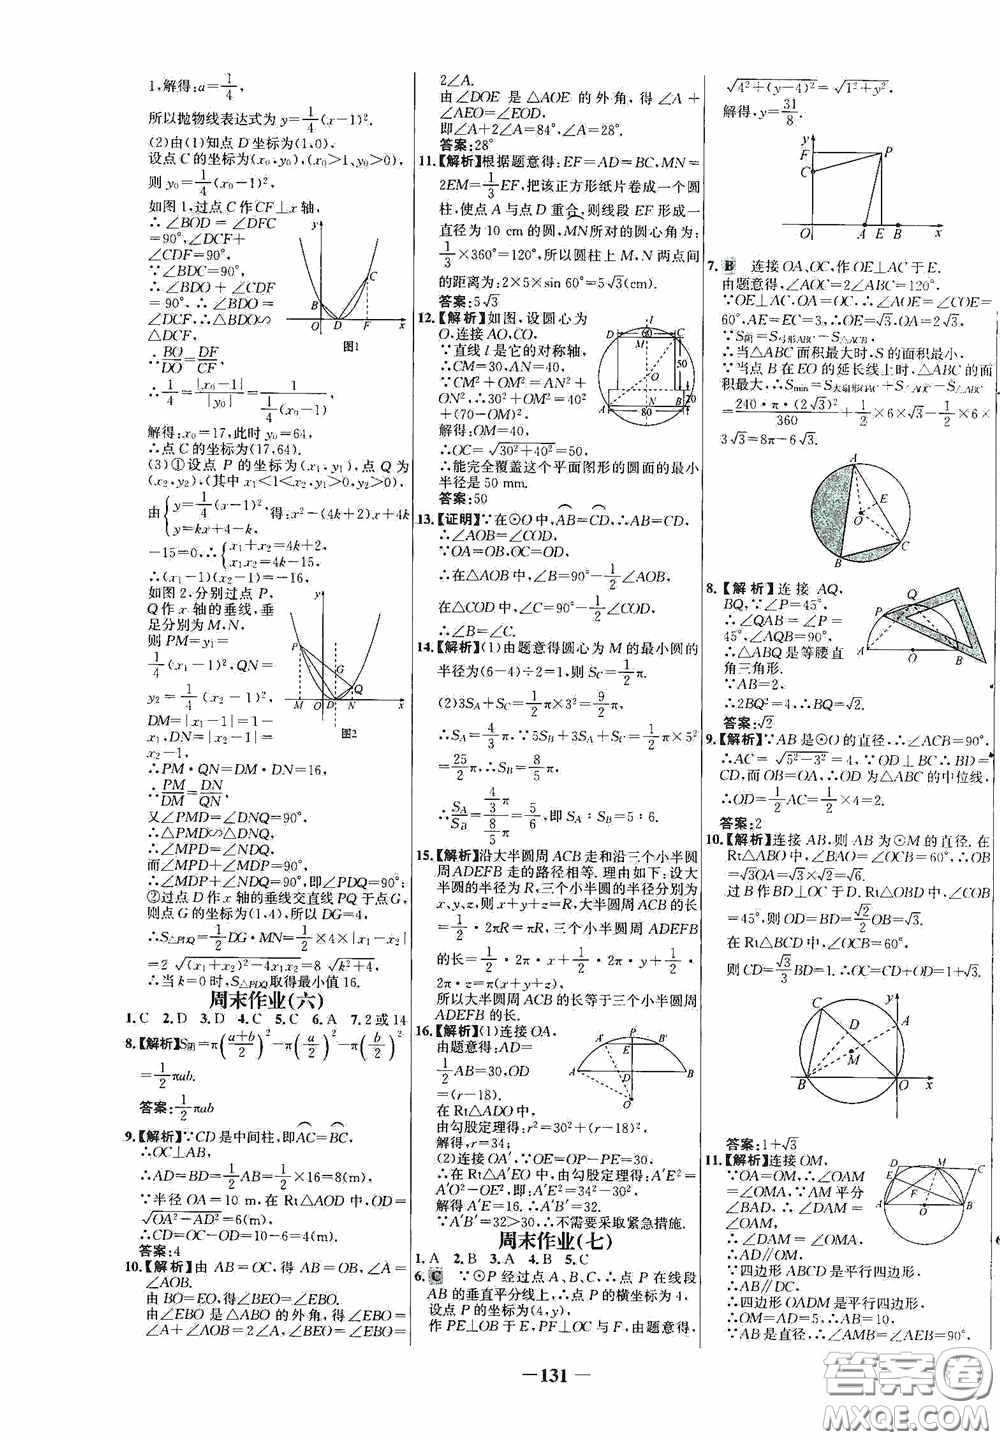 1,解得:a=1/4,
所以抛物线表达式为y=1/4(x-1)².
(2)由(1)知点D坐标为(1,0),
设点C的坐标为(x₀,y₀),(x₀>1、y₀>0)
则y₀=1/4(x₀-1)²,
如图1,过点C作CF⊥x轴,
∴∠BOD=∠DFC
=90°,∠DCF+
∠CDF=90°.
∵∠BDC=90°,
∴∠BDO+∠CDF
=90°,∴∠BDO=
∠DCF,∴△BDO∽
△DCF,
∴BO/DO=DF/CF,
∴1/4=|x₀-1|/|y₀|=1/(1/4(x₀-1)).
解得:x₀=17,此时y₀=64,
∴点C的坐标为(17,64).
(3)①设点P的坐标为(x₁,y₁),点Q为
(x₂,y₂),(其中x₁<1<x₂,y₁>0,y₂>0)
由{y=1/4(x-1)², y=kx+4-k, 得:x²-(4k+2)x+4k
-15=0,∴{x₁+x₂=4k+2, x₁x₂=4k-15,
∴(x₁-1)(x₂-1)=-16,
如图2,分别过点P、
Q作x轴的垂线,垂
足分别为M,N,
则PM=y₁=
1/4(x₁-1)²,QN=
y₂=1/4(x₂-1)²,
DM=|x₁-1|=1-
x₁,DN=|x₂-1|=
x₂-1,
∴PM·QN=DM·DN=16,
∴PM/DM=DN/QN,
又∠PMD=∠DNQ=90°,
∴△PMD∽△DNQ,
∴∠MPD=∠NDQ,
而∠MPD+∠MDP=90°,
∴∠MDP+∠NDQ=90°,即∠PDQ=90°;
②过点D作x轴的垂线交直线PQ于点G,
则点G的坐标为(1,4),所以DG=4,
∴S△PDQ=1/2DG·MN=1/2×4×|x₁-x₂|
=2√((x₁+x₂)²-4x₁x₂)=8√(k²+4),
∴当k=0时,S△PDQ取得最小值16.
周末作业(六)
1.C 2.D 3.D 4.C 5.C 6.A 7.2或14
8.【解析】S阴=π((a+b)/2)²-π(a/2)²-π(b/2)²
=1/2πab.
答案:1/2πab
9.【解析】∵CD是中间柱,即AC=BC,
∴OC⊥AB,
∴AD=BD=1/2AB=1/2×16=8(m),
∵半径OA=10 m,在Rt△AOD中,OD=
√(OA²-AD²)=6(m),
∴CD=OC-OD=10-6=4(m).
答案:4
10.【解析】由AB=OC,得AB=BO,∠A=
∠AOB.
由BO=EO,得∠BEO=∠EBO.
由∠EBO是△ABO的外角,得∠EBO=
∠A+∠AOB=2∠A,∠BEO=∠EBO=
2∠A.
由∠DOE是△AOE的外角,得∠A+
∠AEO=∠EOD,
即∠A+2∠A=84°,∠A=28°.
答案:28°
11.【解析】根据题意得:EF=AD=BC,MN=
2EM=1/3EF,把该正方形纸片卷成一个圆
柱,使点A与点D重合,则线段EF形成一
直径为10 cm的圆,MN所对的圆心角为:
1/3×360°=120°,所以圆柱上M,N两点间
的距离为:2×5×sin 60°=5√3(cm).
答案:5√3
12.【解析】如图,设圆心为
O,连接AO,CO,
∵直线l是它的对称轴,
∴CM=30,AN=40,
∵CM²+OM²=AN²+
ON²,∴30²+OM²=40²
+(70-OM)²,
解得:OM=40,
∴OC=√(30²+40²)=50,
∴能完全覆盖这个平面图形的圆面的最小
半径是50 mm.
答案:50
13.【证明】∵在⊙O中,AB=CD,
∴∠AOB=∠COD,
∵OA=OB,OC=OD,
∴在△AOB中,∠B=90°-1/2∠AOB,
在△COD中,∠C=90°-1/2∠COD,
∴∠B=∠C.
14.【解析】(1)由题意得圆心为M的最小圆的
半径为(6-4)÷2=1,所以S_C=1/2π.
(2)3S_A+S_C=1/2π×3²=9/2π,
∴S_A=4/3π,∵5S_B+3S_A+S_C=1/2π×5²
=25/2π,∴S_B=8/5π,
∴S_A/S_B=(4/3π)/(8/5π)=5/6,即S_A:S_B=5:6.
15.【解析】沿大半圆周ACB走和沿三个小半圆
周ADEFB走的路径相等.理由如下:设大
半圆的半径为R,三个小半圆的半径分别为
x,y,z,则x+y+z=R.大半圆周ACB的长=
1/2·2πR=πR,三个小半圆周ADEFB
的长=1/2·2π·x+1/2·2π·y+1/2·
2π·z=π(x+y+z)=πR,
所以大半圆周ACB的长等于三个小半圆周
ADEFB的长.
16.【解析】(1)连接OA,
由题意得:AD=
1/2AB=30,OD
=(r-18).
在Rt△ADO中,
由勾股定理得:r²=30²+(r-18)²,
解得,r=34;
(2)连接OA′,∵OE=OP-PE=30,
∴在Rt△A′EO中,由勾股定理得:A′E²=
A′O²-OE²,即:A′E²=34²-30²,
解得A′E=16,∴A′B′=32.
∵A′B′=32>30,∴不需要采取紧急措施.
周末作业(七)
1.A 2.B 3.A 4.B 5.C
6.C ∵⊙P经过点A、B、C,∴点P在线段
AB的垂直平分线上,∴点P的横坐标为4,
设点P的坐标为(4,y),
作PE⊥OB于E,PF⊥OC与F,由题意得,
√(4²+(y-4)²)=√(1²+y²),
解得,y=31/8.
7.B 连接OA、OC,作OE⊥AC于E.
由题意得,∠AOC=2∠ABC=120°,
∵OE⊥AC,OA=OC,∴∠AOE=∠COE=
60°,AE=EC=3,∴OE=√3,OA=2√3,
∵S阴=S弓形ABC-S△ACB,
∴当△ABC面积最大时,S的面积最小.
∵当点B在EO的延长线上时,△ABC的面
积最大,∴Smin=S大扇形OAC+S△AOC-S△ABC
=240·π·(2√3)²/360+1/2×6×√3-1/2×6×
3√3=8π-6√3.
8.【解析】连接AQ,
BQ,∵∠P=45°,
∴∠QAB=∠P=
45°,∠AQB=90°,
∴△ABQ是等腰直
角三角形.
∵AB=2,
∴2BQ²=4,∴BQ=√2.
答案:√2
9.【解析】∵AB是⊙O的直径,∴∠ACB=90°,
∴AC=√(5²-3²)=4,∵OD⊥BC∴BD=
CD,而OB=OA,∴OD为△ABC的中位线,
∴OD=1/2AC=1/2×4=2.
答案:2
10.【解析】连接AB,则AB为⊙M的直径.在
Rt△ABO中,∠BAO=∠OCB=60°,∴OB
=√3OA=√3×√2=√6.
过B作BD⊥OC于D.Rt△OBD中,∠COB
=45°,则OD=BD=√2/2OB=√3.
在Rt△BCD中,∠OCB=60°,
则CD=√3/3BD=1.∴OC=CD+OD=1+√3.
答案:1+√3
11.【解析】连接OM,
∵OA=OM,∴∠OAM
=∠OMA,∵AM平分
∠BAD,∴∠DAM=
∠OAM,
∴∠DAM=∠OMA,
∴AD∥OM,
∵四边形ABCD是平行四边形,
∴AB∥DC,
∴四边形OADM是平行四边形,
∴OM=AD=5,∴AB=10,
∵AB是直径,∴∠AMB=∠AEB=90°,
图1
图2
— 131 —
答案圈
MXQE.COM